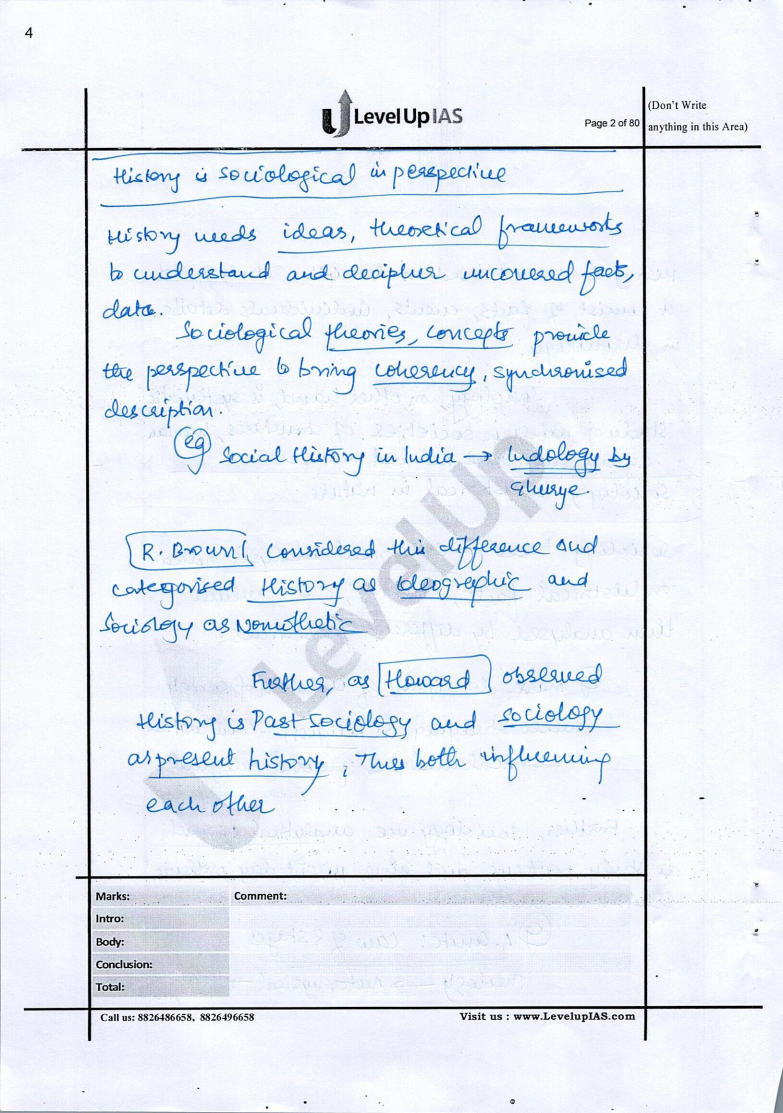 4
Level Up IAS
Page 2 of 80
(Don't Write
anything in this Area)
History is sociological in perspective
History needs ideas, theoretical frameworks
to understand and decipher uncovered facts,
data.
Sociological theories, concepts provide
the perspective to bring coherency, synchronised
description.
eg Social History in India → Indology by
Ghurye.
R. Brown considered this difference and
categorised History as Ideographic and
Sociology as Nomothetic
Further, as Howard observed
History is Past Sociology and sociology
as present history, Thus both influencing
each other
LevelUp
Marks:
Comment:
Intro:
Body:
Conclusion:
Total:
Call us: 8826486658, 8826496658
Visit us : www.LevelupIAS.com